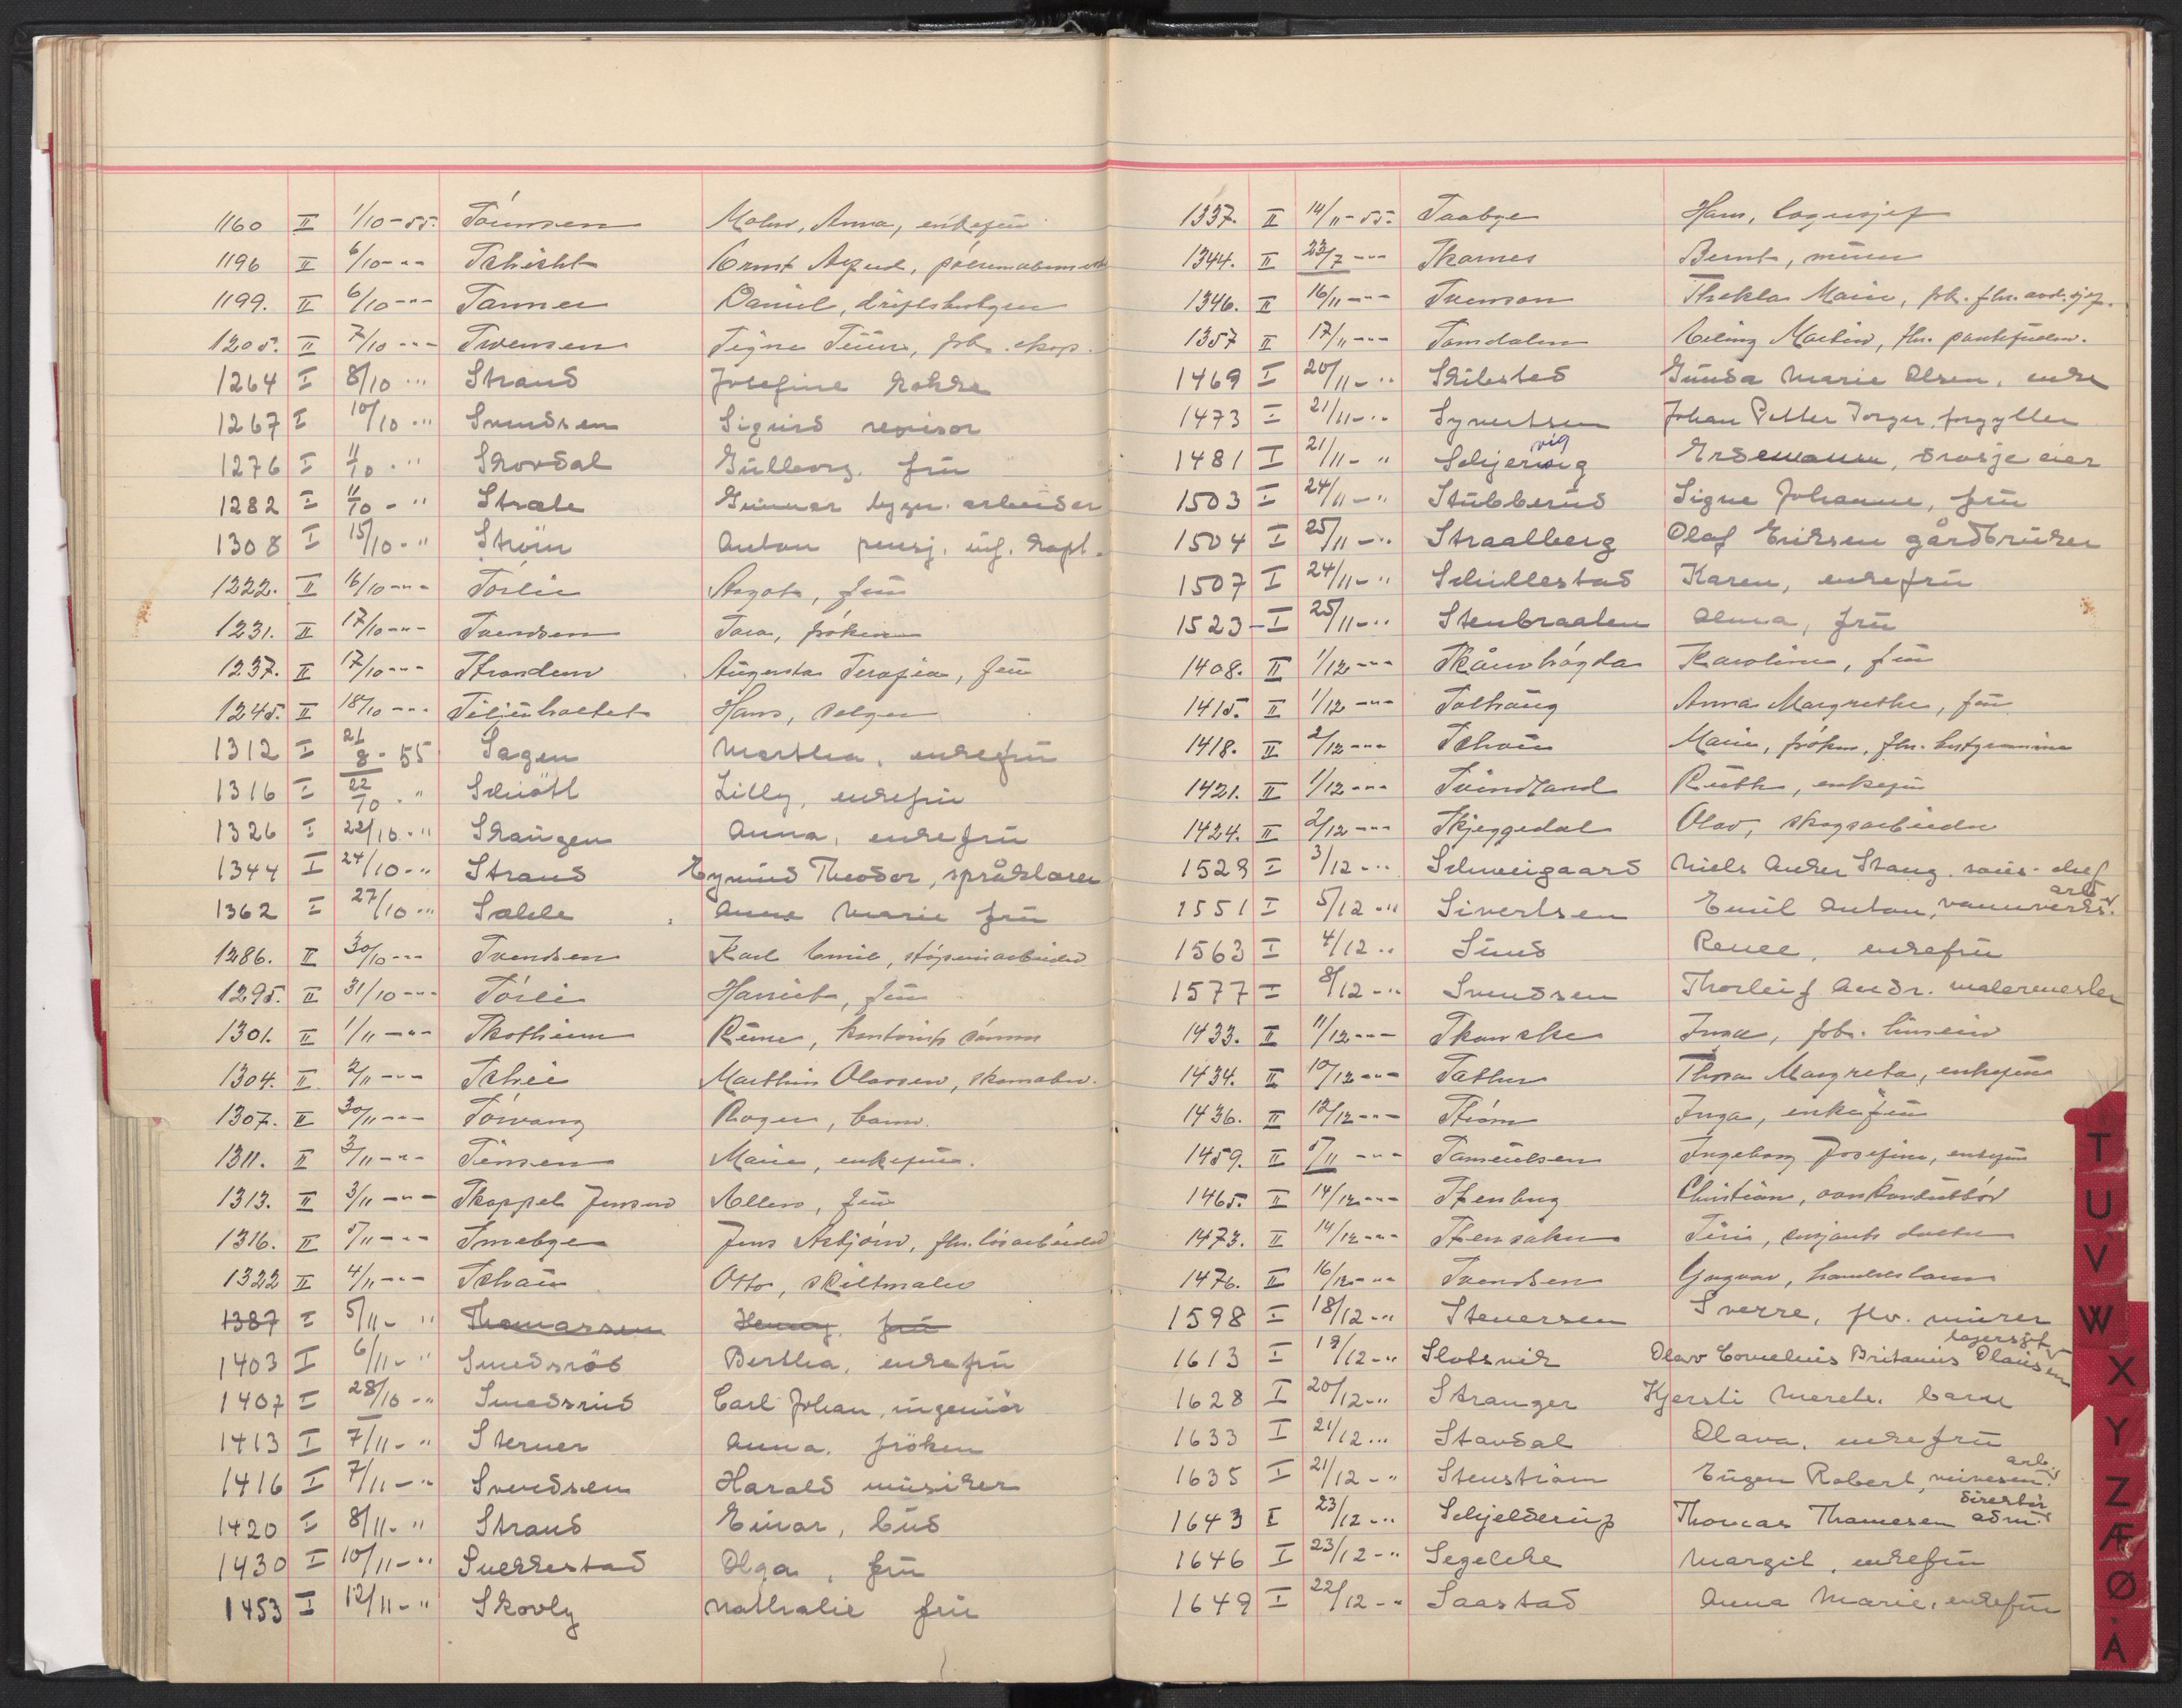 1160 II 1/10-55. Sörensen Molar, Anna, enkefru
1196 II 6/10-"- Schicht Ernst Aqzud,
1199. II 6/10-"- Sanner Daniel, driftsbestyrer
1205. II 7/10-"- Svensen Signe Süur, frk. eksp.
1264 I 8/10 -" Strand Josefine kokke
1267 I 10/10 -" Svendsen Sigurd revisor
1276 I 11/10 -" Skovdal Gullborg. fru
1282 I 11/10 -" Strale Gunnar bygn. arbeider
1308 I 15/10 -" Ström Anton pensj. inf. kapt.
1222. II 16/10-"- Sörlie Aagot, fru
1231. II 17/10-"- Svendsen Sara, fröken
1237. II 17/10-"- Stranden Augusta Serafia, fru
1245. II 18/10-"- Siljuholtet Hans, selger
1312 I 21/8 - 55 Sagen Martha, enkefru
1316 I 22/10 -" Schiött Lilly, enkefru
1326 I 22/10 -" Skaugen Anna, enkefru
1344 I 24/10 -" Strand Eyvind Theodor, språklærer
1362 I 27/10 -" Salde Anne Marie fru
1286. II 30/10-"- Svendsen Karl Emil, støperiarbeider
1295. II 31/10-"- Sörli Harriet, fru
1301. II 1/11-"- Skotheim Rune, kontorists sønn
1304. II 2/11-"- Schei Marthin Olausen, skomaker.
1307. II 30/11-"- Sörvang Roger, barn.
1311. II 3/11-"- Simensen Marie, enkefru.
1313. II 3/11-"- Skappel Jensen Ellen, fru
1316. II 5/11-"- Smebye Jens Asbjörn, fhv. lösarbeider
1322 II 4/11-"- Schau Otto, skiltmaler
1387 I 5/11-" Thomassen Henny. fru
1403 I 6/11-" Smedsröd Bertha, enkefru
1407 I 28/10 -" Smedsrud Carl Johan, ingeniör
1413 I 7/11-" Sterner Anna, fröken
1416 I 7/11-" Svendsen Harald musiker
1420 I 8/11-" Strand Einar, bud
1430 I 10/11-" Suekkestad Olga, fru
1453 I 12/11-" Skovly Nathalie fru
1337. II 14/11-55. Saabye Hans, lagersjef
1344. II 23/7-"- Skarnes Bernt, murer
1346. II 16/11-"- Svenson Thekla Marie, frk. fhv. avd. sjef.
1357 II 17/11-"- Samdalen Erling Martin, fhv. pantefullm.
1469 I 20/11-" Skilestad Gunda Marie Olsen, enke
1473 I 21/11-" Syvertsen Johan Petter Jörger, forgyller
1481 I 21/11-" Schjerwig vig Erdemann, drosje eier
1503 I 24/11-" Stubberud Signe Johanne, fru
1504 I 25/11-" Straalberg Olaf Eriksen gårdbruker
1507 I 24/11-" Schullestad Karen, enkefru
1523 -I 25/11-" Stenbraaten Alma, fru
1408. II 1/12-"- Skånhögda Karoline, fru
1415. II 1/12-"- Solhaug Anna Margrethe, fru
1418. II 2/12-"- Schou Marie, fröken, fhv. bestyrerinne
1421. II 1/12-"- Svindland Ruth, enkefru
1424. II 2/12-"- Skjeggedal Olav, skogsarbeider
1529 I 3/12-" Schweigaard Niels Anker Stang. chef
1551 I 5/12-" Sivertsen Emil Anton, vannverks. arb
1563 I 4/12-" Sund Renee, enkefru
1577 I 8/12-" Svendsen Thorleif Andr. malermester
1433. II 11/12-"- Skanche Inga, frk.
1434. II 10/12-"- Sæther Thora Margreta, enkefru
1436. II 12/12-"- Ström Inga, enkefru
1459. II 5/11-"- Samuelsen Ingeborg Josefine, enkefru
1465. II 14/12-"- Stenbug Christian, vannkonduktör
1473. II 14/12-"- Stensaker Siri, sersjants datter
1476. II 16/12-"- Svendsen Yngvar, handelsbarn
1598 I 18/12-" Steuersen Sverre, fhv. murer
1613 I 19/12-" Slotsvik Olav Cornelius Britanius Olausen lagersjef
1628 I 20/12-" Stranger Kjersti Merete. barn
1633 I 21/12-" Stavdal Olava, enkefru
1635 I 21/12-" Stenström Eugen Robert, veivesen. arb.
1643 I 23/12-" Schjelderup Thomas Thamesen adm. direktör
1646 I 23/12-" Segelcke Margit, enkefru
1649 I 22/12-" Saastad Anna Marie, enkefru
T
U
V
W
X
Y
Z
Æ
Ø
Å